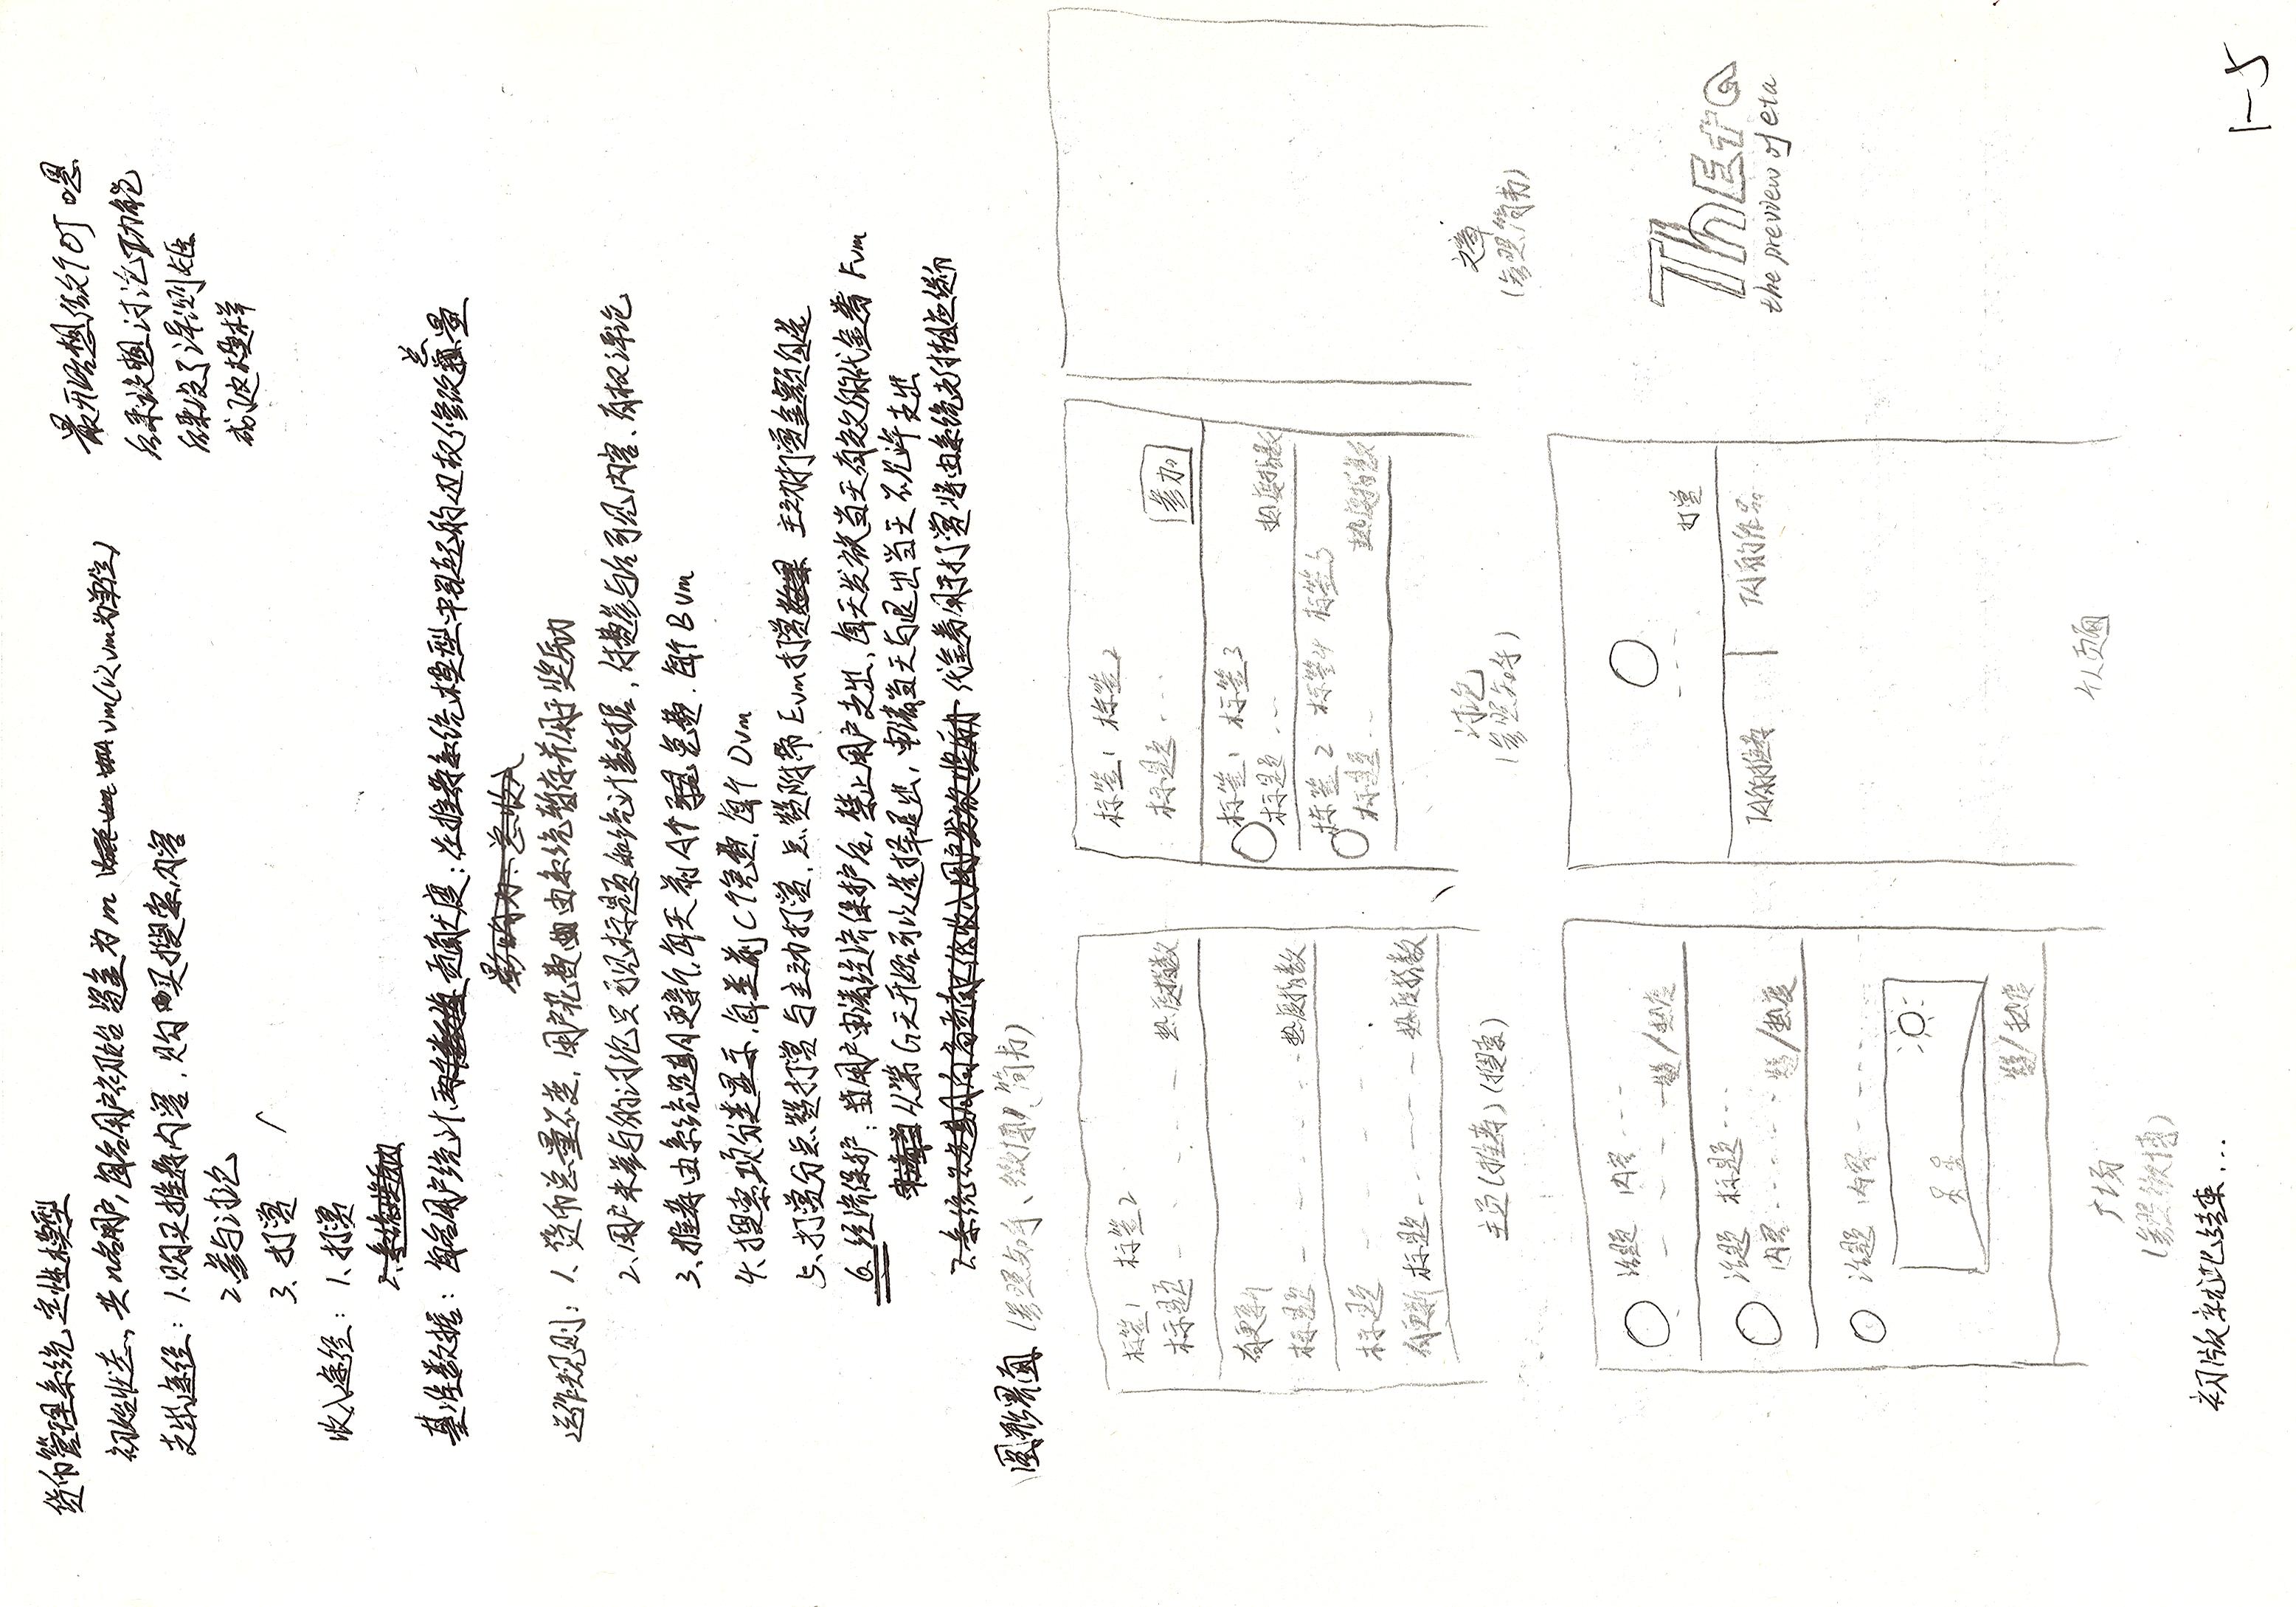 货币管理系统 定性模型
初始状态：共n名用户，每名用户初始资金为m vm(以vm为单位)
支出途径：1.购买推荐内容，购买搜索内容
2.参与讨论
3.打赏
收入途径：1.打赏
2.系统奖励
基准数据：每名用户统计 贡献度：在推荐系统模型中引起的边权修改总量
影响力：总收入
运作规则：1.货币总量不变，用户花费由系统暂存并用于奖励
2.用户未参与的讨论只可见标题和统计数据，付费参与后可见内容、有权评论
3.推荐由系统定期更新，每天前A个免费，每个Bvm
4.搜索项分类显示，每类前C个免费，每个Dvm
5.打赏分点赞打赏与主动打赏，点赞附带Evm打赏 主动打赏金额自选
6.经济保护：当用户申请经济保护后，禁止用户支出，每天发放当天有效的代金券Fvm
从第G天开始可以选择退出，申请当天与退出当天不允许支出
代金券用于打赏将由系统支付相应货币
最开始想做个OJ 嗯
后来设想讨论功能
后来没了评测姬
成了这模样
图形界面（参照知乎、微博、简书）
标签1 标签2
标题 热度指数
有更新
标题 热度指数
标题
有更新 标题 热度指数
主页(推荐)(搜索)
标签1 标签2
标题...
参加
标签1 标签3
标题... 热度指数
标签2 标签4 标签5
标题... 热度指数
讨论
(参照知乎)
文章
(参照简书)
话题 内容---
赞/热度
话题 标题---
内容 赞/热度
话题 内容
赞/热度
广场
(参照微博)
打赏
TA的推荐 TA的作品
个人页面
ThEta
the preview of eta
初版就此结束...
1-5